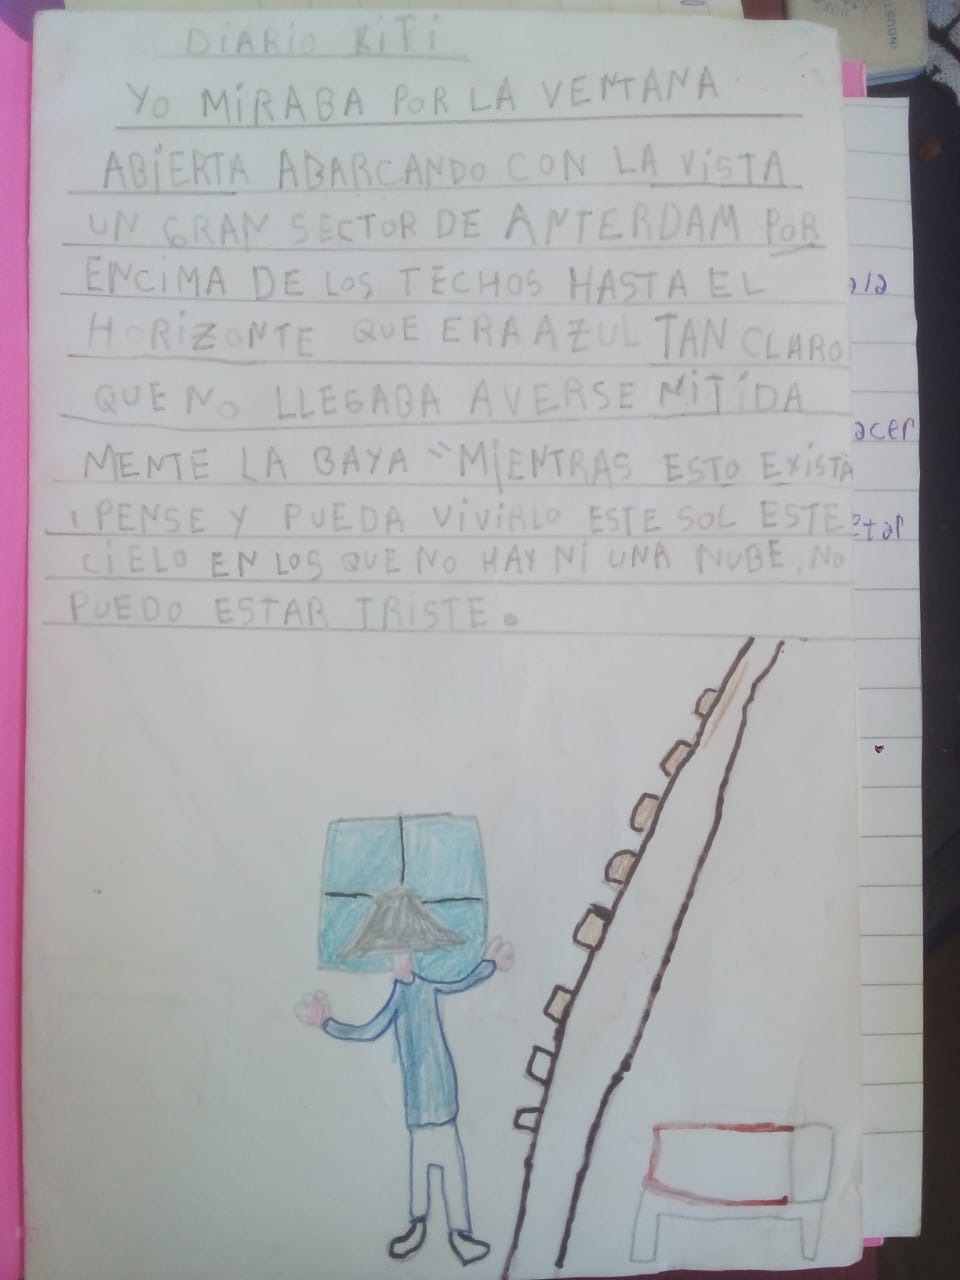 DIARIO KITI
YO MIRABA POR LA VENTANA
ABIERTA ABARCANDO CON LA VISTA
UN GRAN SECTOR DE ANTERDAM POR
ENCIMA DE LOS TECHOS HASTA EL
HORIZONTE QUE ERA AZUL TAN CLARO
QUE NO LLEGABA AVERSE NITIDA
MENTE LA BAYA "MIENTRAS ESTO EXISTA
, PENSE Y PUEDA VIVIRLO ESTE SOL ESTE
CIELO EN LOS QUE NO HAY NI UNA NUBE, NO
PUEDO ESTAR TRISTE.
acer